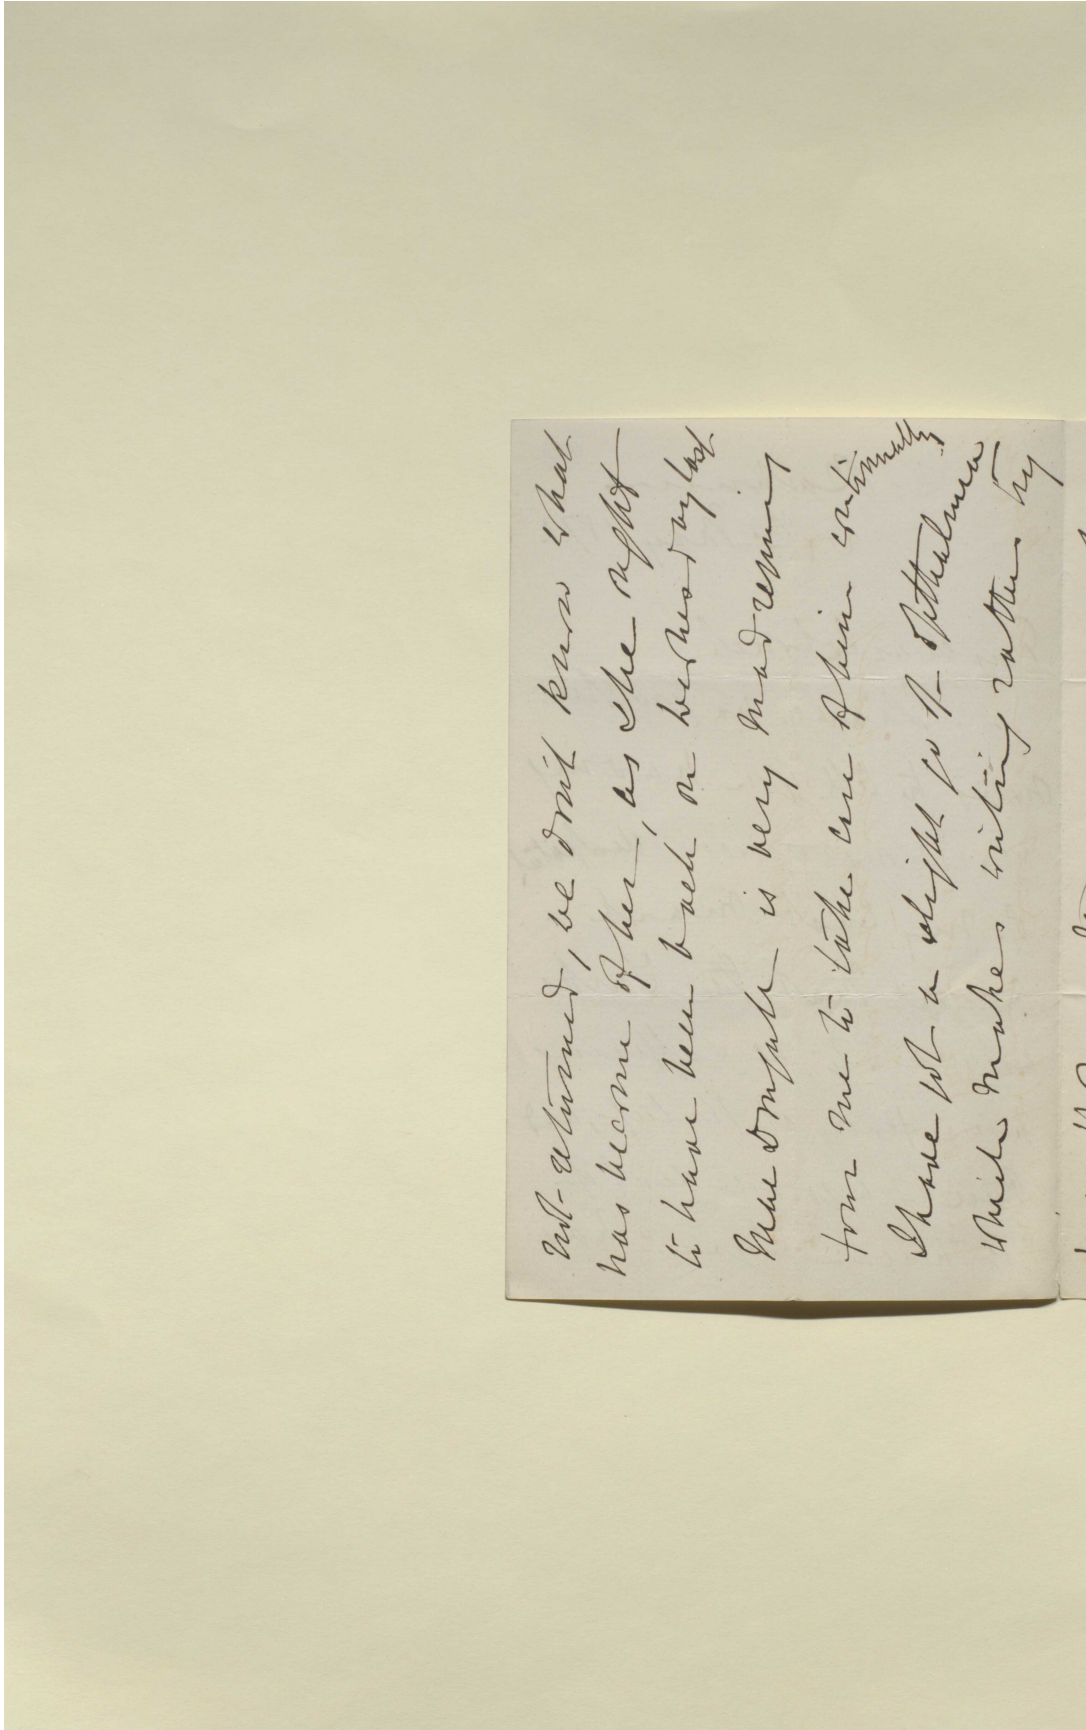 not returned, we don't know what
has become of her, as she ought
to have been back on Wednesday last
is very mad requiring
from me to take care of him continually
I have got a slight go of opthalmia
which makes writing rather try